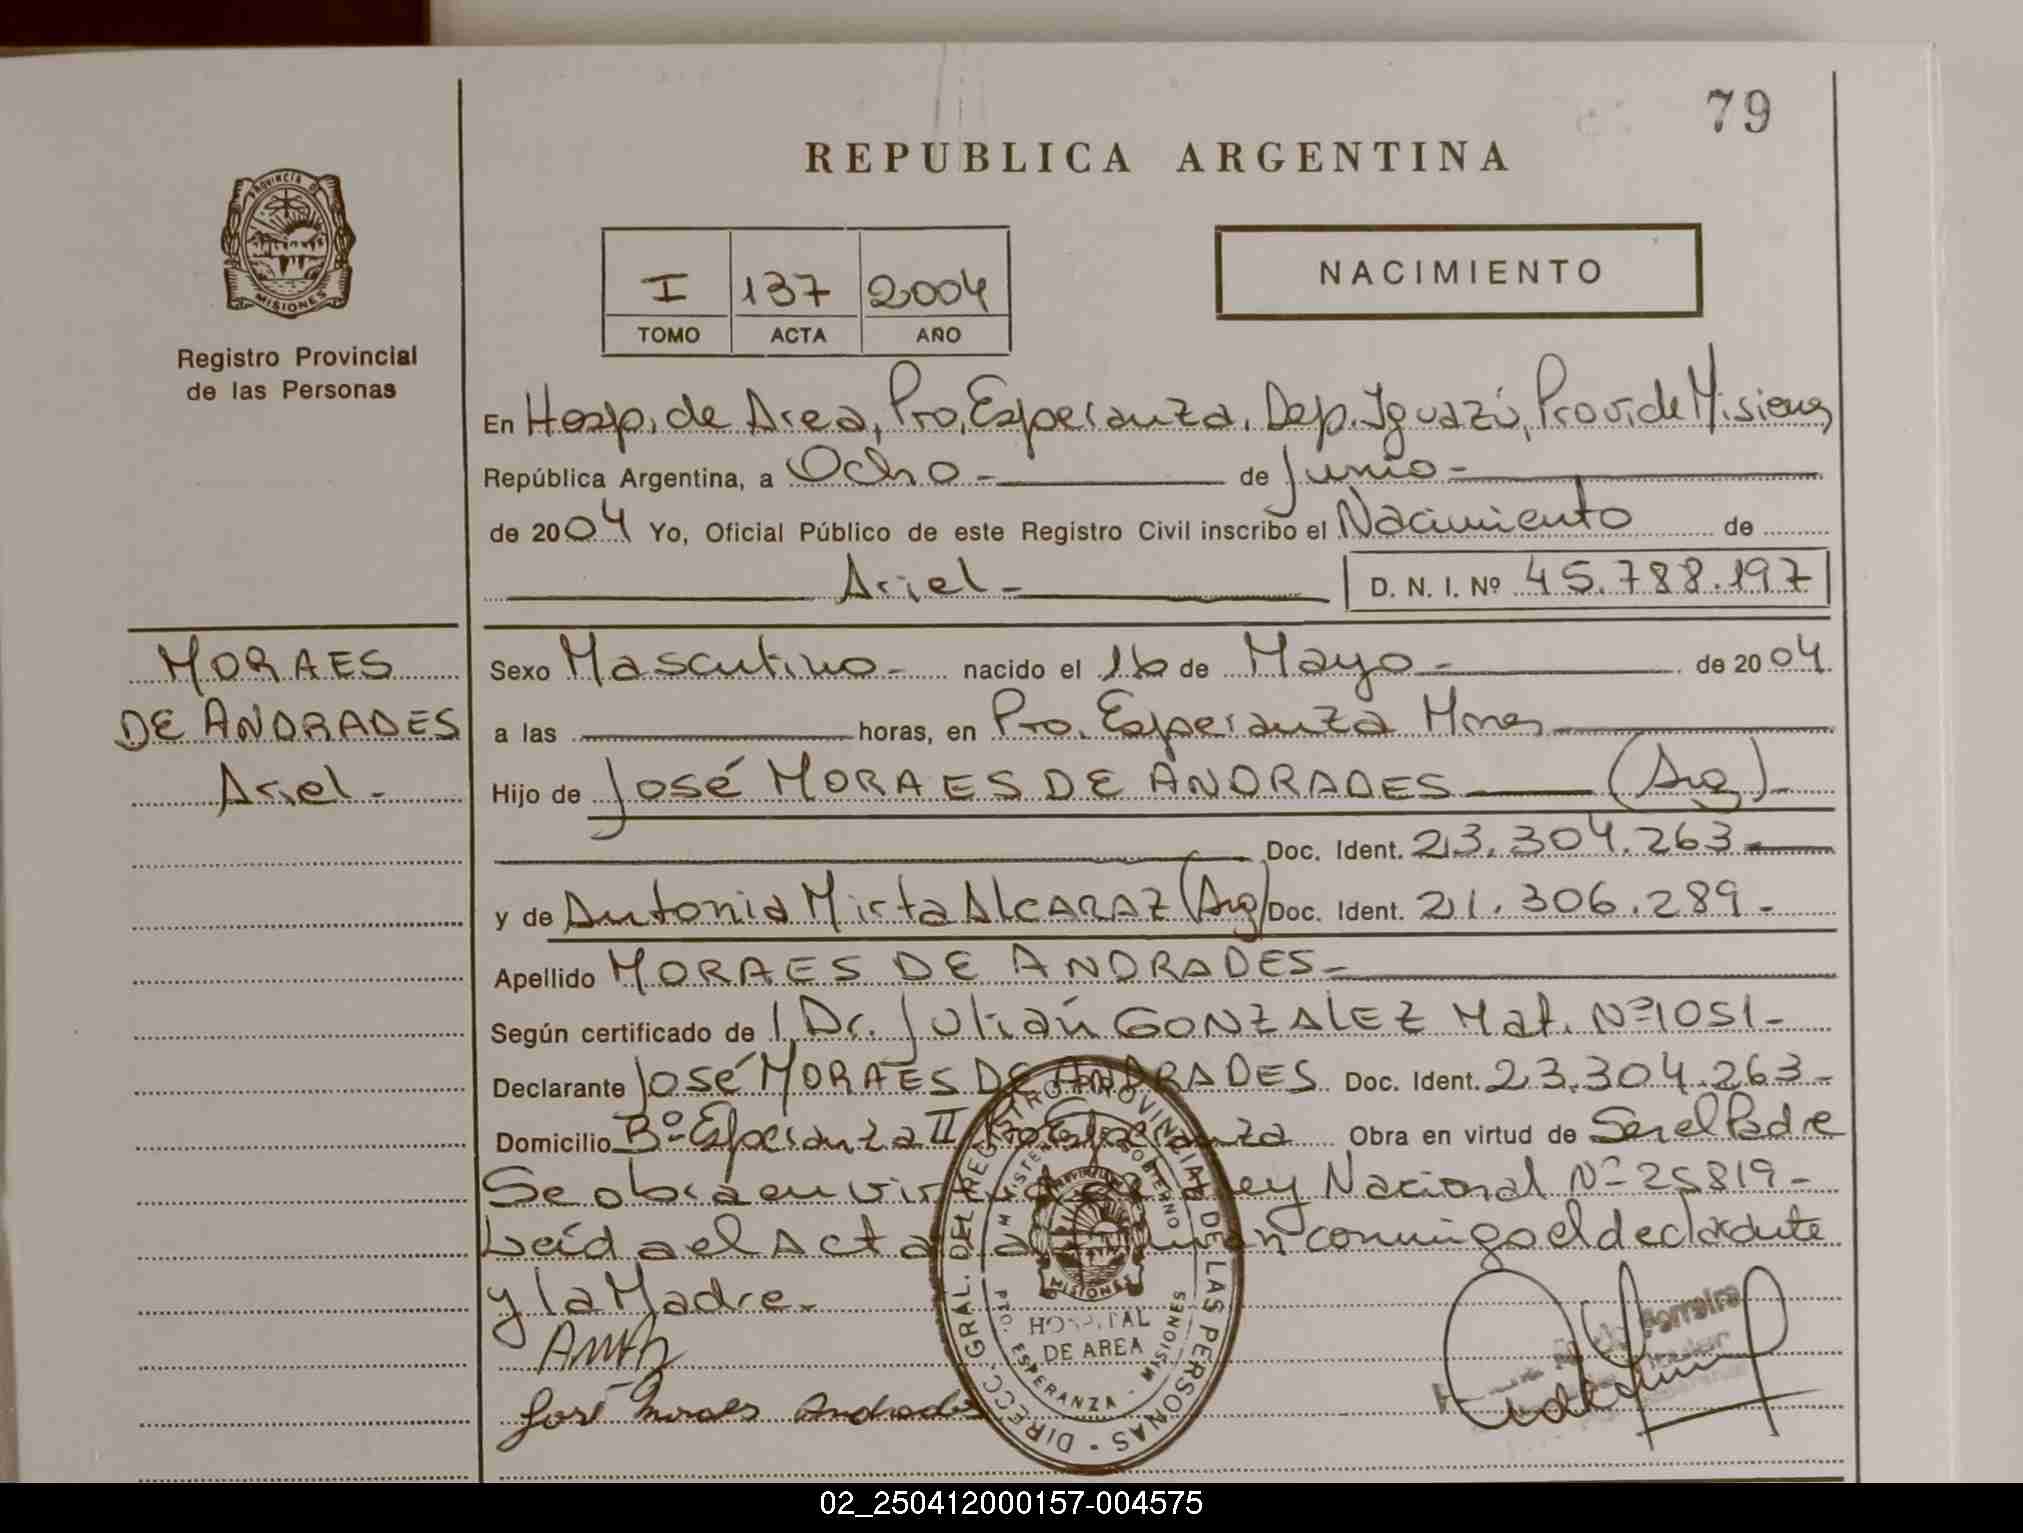 79
REPUBLICA ARGENTINA
PROVINCIA DE
MISIONES
Registro Provincial
de las Personas
I 137 2004
TOMO ACTA AÑO
NACIMIENTO
En Hosp. de Area, Pto. Esperanza. Dep. Iguazú, Prov. de Misiones
República Argentina, a Ocho - de Junio -
de 2004 Yo, Oficial Público de este Registro Civil inscribo el Nacimiento de
Ariel - D. N. I. Nº 45.788.197
MORAES
DE ANDRADES
Ariel -
Sexo Masculino - nacido el 16 de Mayo - de 2004
a las horas, en Pto. Esperanza Mnes
Hijo de José MORAES DE ANDRADES (Arg) -
Doc. Ident. 23.304.263 -
y de Antonia Mirta ALCARAZ (Arg) Doc. Ident. 21.306.289 -
Apellido MORAES DE ANDRADES -
Según certificado de 1, Dr. Julián GONZALEZ Mat. Nº 1051 -
Declarante José MORAES DE ANDRADES Doc. Ident. 23.304.263 -
Domicilio Bº Esperanza II Pto Esperanza Obra en virtud de Ser el Padre
Se obra en virtud Ley Nacional Nº 25819 -
Leída el Acta conmigo el declarante
y la Madre.
José Moraes Andrades
DIRECC. GRAL. DEL REGISTRO PROVINCIAL DE LAS PERSONAS
HOSPITAL
DE AREA
PTO. ESPERANZA - MISIONES
Ferreira
02_250412000157-004575